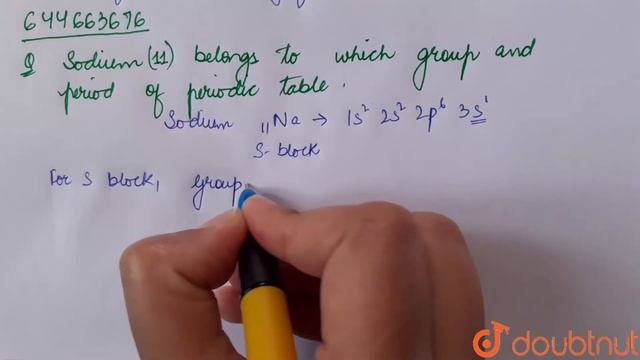 644663676
Q Sodium (11) belongs to which group and
period of periodic table.
Sodium 11Na → 1s² 2s² 2p⁶ 3s¹
S-block
For S block, Group
doubtnut